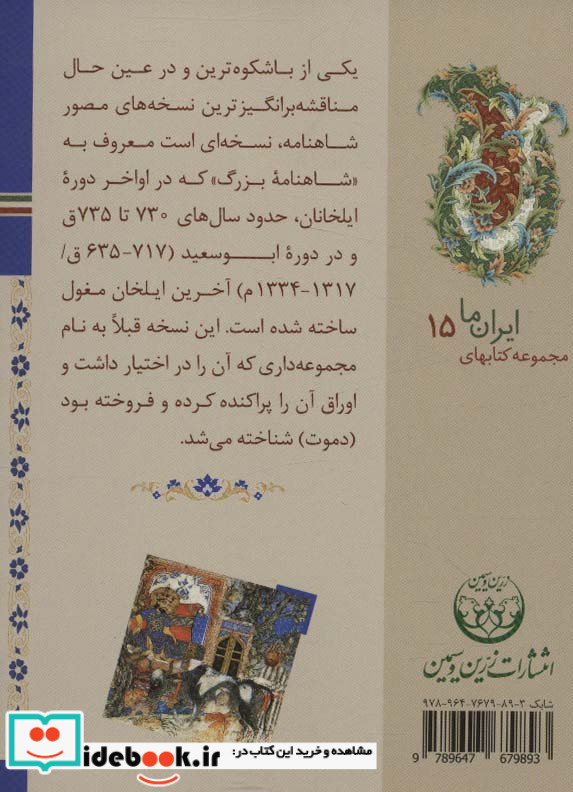 یکی از باشکوه‌ترین و در عین حال
مناقشه‌برانگیزترین نسخه‌های مصور
شاهنامه، نسخه‌ای است معروف به
«شاهنامهٔ بزرگ» که در اواخر دورهٔ
ایلخانان، حدود سال‌های ۷۳۰ تا ۷۳۵ق
و در دورهٔ ابوسعید (۷۱۷-۶۳۵ ق/
۱۳۱۷-۱۳۳۴م) آخرین ایلخان مغول
ساخته شده است. این نسخه قبلاً به نام
مجموعه‌داری که آن را در اختیار داشت و
اوراق آن را پراکنده کرده و فروخته بود
(دموت) شناخته می‌شد.
ایران ما ۱۵
مجموعه کتابهای
زرین و سیمین
انتشارات زرین و سیمین
شابک ۳-۸۹-۷۶۷۹-۹۶۴-۹۷۸
9 789647 679893
مشاهده و خرید این کتاب در:
idebook.ir